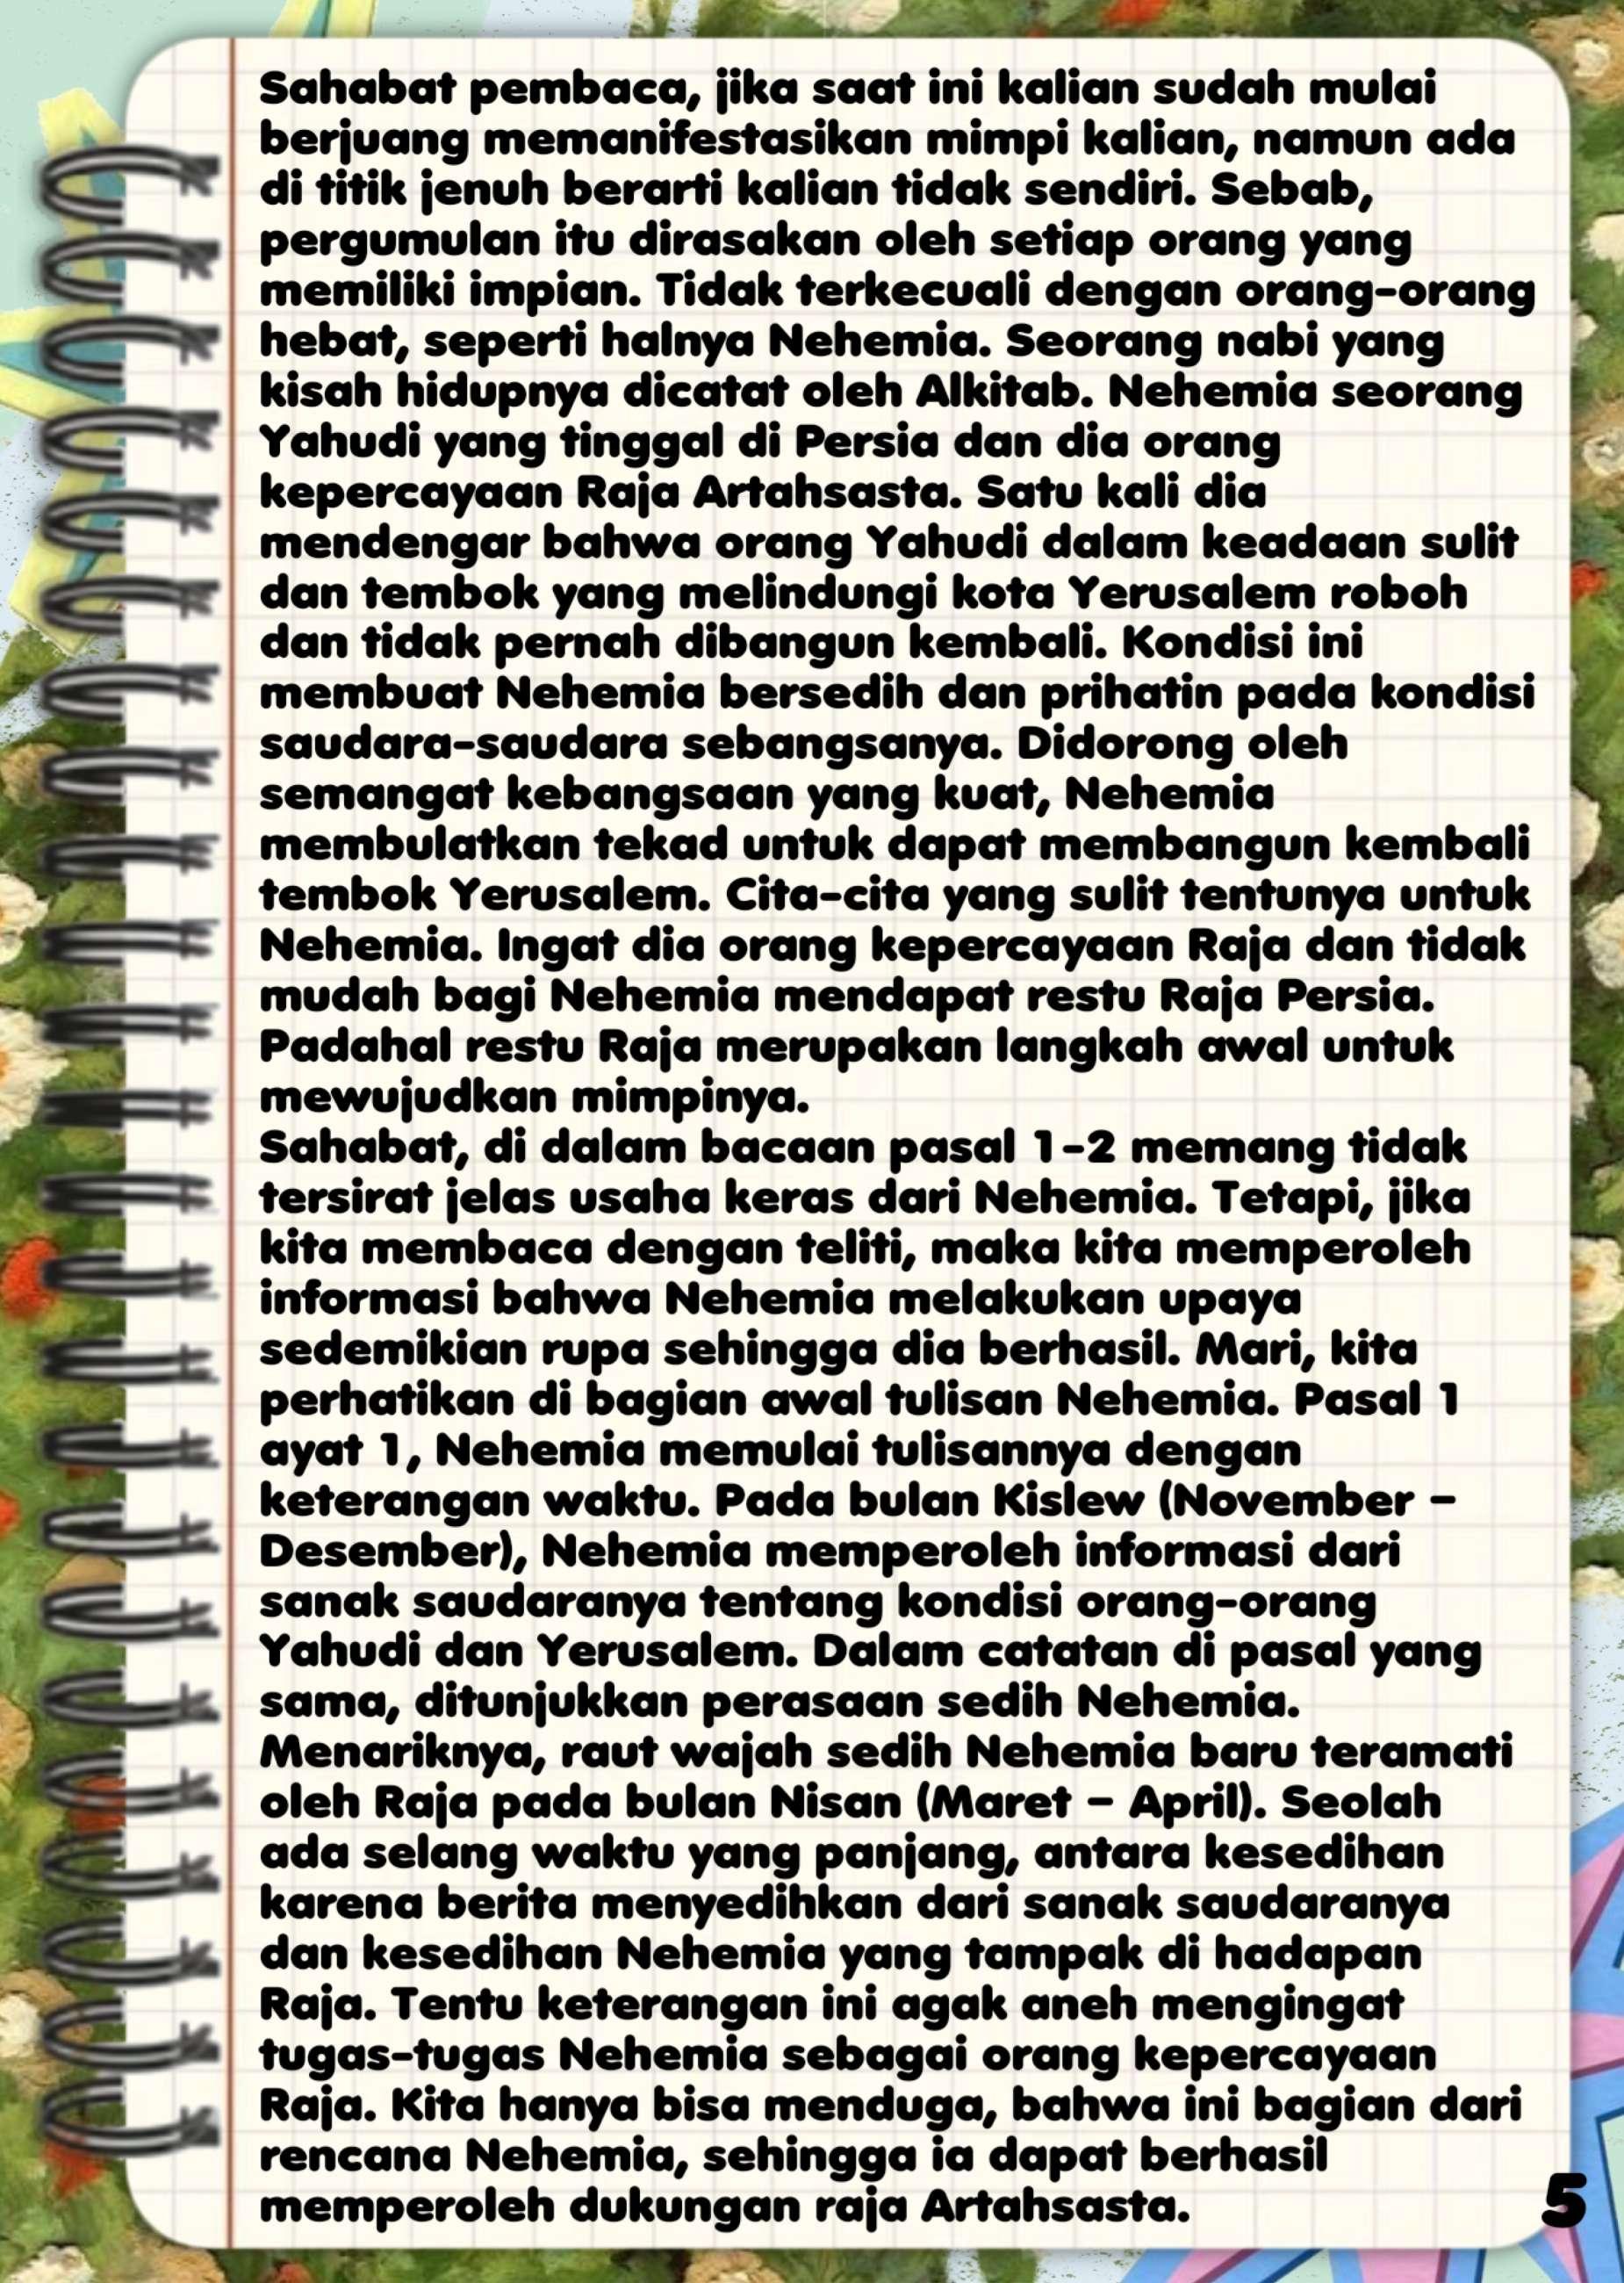 Sahabat pembaca, jika saat ini kalian sudah mulai
berjuang memanifestasikan mimpi kalian, namun ada
di titik jenuh berarti kalian tidak sendiri. Sebab,
pergumulan itu dirasakan oleh setiap orang yang
memiliki impian. Tidak terkecuali dengan orang-orang
hebat, seperti halnya Nehemia. Seorang nabi yang
kisah hidupnya dicatat oleh Alkitab. Nehemia seorang
Yahudi yang tinggal di Persia dan dia orang
kepercayaan Raja Artahsasta. Satu kali dia
mendengar bahwa orang Yahudi dalam keadaan sulit
dan tembok yang melindungi kota Yerusalem roboh
dan tidak pernah dibangun kembali. Kondisi ini
membuat Nehemia bersedih dan prihatin pada kondisi
saudara-saudara sebangsanya. Didorong oleh
semangat kebangsaan yang kuat, Nehemia
membulatkan tekad untuk dapat membangun kembali
tembok Yerusalem. Cita-cita yang sulit tentunya untuk
Nehemia. Ingat dia orang kepercayaan Raja dan tidak
mudah bagi Nehemia mendapat restu Raja Persia.
Padahal restu Raja merupakan langkah awal untuk
mewujudkan mimpinya.
Sahabat, di dalam bacaan pasal 1-2 memang tidak
tersirat jelas usaha keras dari Nehemia. Tetapi, jika
kita membaca dengan teliti, maka kita memperoleh
informasi bahwa Nehemia melakukan upaya
sedemikian rupa sehingga dia berhasil. Mari, kita
perhatikan di bagian awal tulisan Nehemia. Pasal 1
ayat 1, Nehemia memulai tulisannya dengan
keterangan waktu. Pada bulan Kislew (November –
Desember), Nehemia memperoleh informasi dari
sanak saudaranya tentang kondisi orang-orang
Yahudi dan Yerusalem. Dalam catatan di pasal yang
sama, ditunjukkan perasaan sedih Nehemia.
Menariknya, raut wajah sedih Nehemia baru teramati
oleh Raja pada bulan Nisan (Maret – April). Seolah
ada selang waktu yang panjang, antara kesedihan
karena berita menyedihkan dari sanak saudaranya
dan kesedihan Nehemia yang tampak di hadapan
Raja. Tentu keterangan ini agak aneh mengingat
tugas-tugas Nehemia sebagai orang kepercayaan
Raja. Kita hanya bisa menduga, bahwa ini bagian dari
rencana Nehemia, sehingga ia dapat berhasil
memperoleh dukungan raja Artahsasta.
5